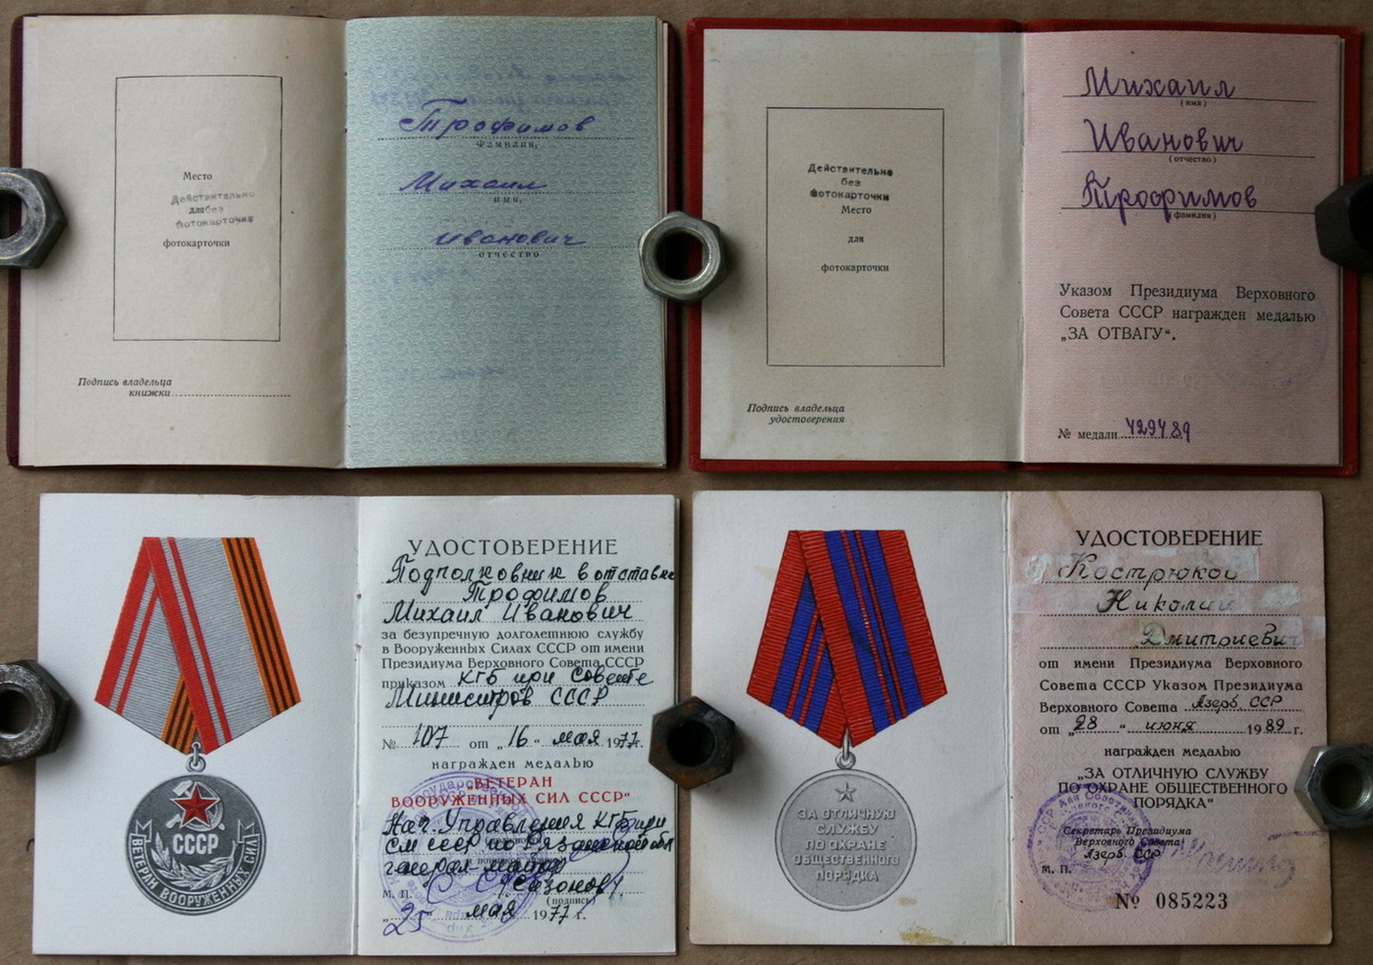 Место
Действительно
для без
фотокарточки
фотокарточки
Подпись владельца
книжки
Трофимов
Фамилия,
Михаил
имя,
Иванович
отчество
Действительно
без
фотокарточки
Место
для
фотокарточки
Подпись владельца
удостоверения
Михаил
(имя)
Иванович
(отчество)
Трофимов
(фамилия)
Указом Президиума Верховного
Совета СССР награжден медалью
„ЗА ОТВАГУ“.
№ медали 4294789
СССР
ВЕТЕРАН ВООРУЖЕННЫХ СИЛ
УДОСТОВЕРЕНИЕ
Подполковник в отставке
Трофимов
Михаил Иванович
за безупречную долголетнюю службу
в Вооруженных Силах СССР от имени
Президиума Верховного Совета СССР
приказом КГБ при Совете
Министров СССР
№ 107 от „16“ мая 1977 г.
награжден медалью
„ВЕТЕРАН
ВООРУЖЕННЫХ СИЛ СССР“
Нач. Управления КГБ при
СМ СССР по Рязанской обл
генерал-майор
(Сазонов)
М. П.
(подпись)
„25 мая 1977 г.
ЗА ОТЛИЧНУЮ
СЛУЖБУ
ПО ОХРАНЕ
ОБЩЕСТВЕННОГО
ПОРЯДКА
УДОСТОВЕРЕНИЕ
Кострюков
Николай
Дмитриевич
от имени Президиума Верховного
Совета СССР Указом Президиума
Верховного Совета Азерб. ССР
от „28“ июня 1989 г.
награжден медалью
„ЗА ОТЛИЧНУЮ СЛУЖБУ
ПО ОХРАНЕ ОБЩЕСТВЕННОГО
ПОРЯДКА“
Секретарь Президиума
Верховного Совета
Азерб. ССР
М. П.
№ 085223